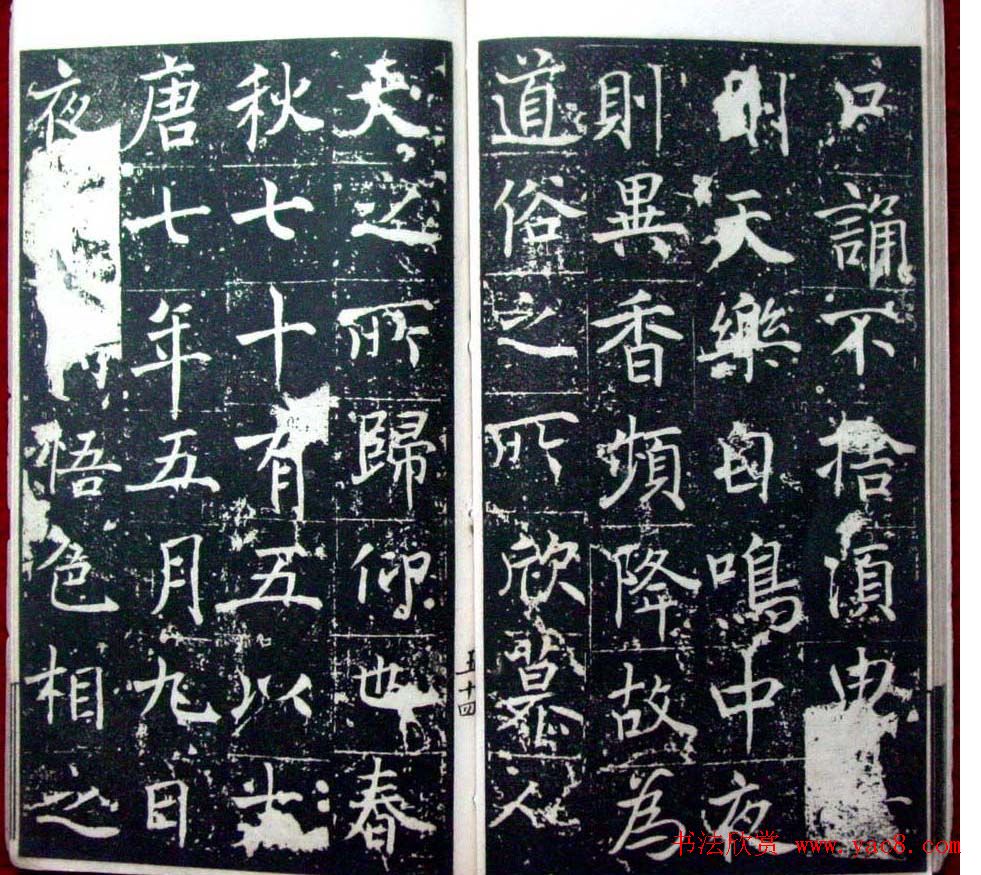 口誦不捨須臾
天樂自鳴中夜
則異香頻降故為
道俗之所欣慕人
天之所歸仰也春
秋七十有五以大
唐七年五月九日
夜悟色相之
五十四
书法欣赏 www.yac8.com